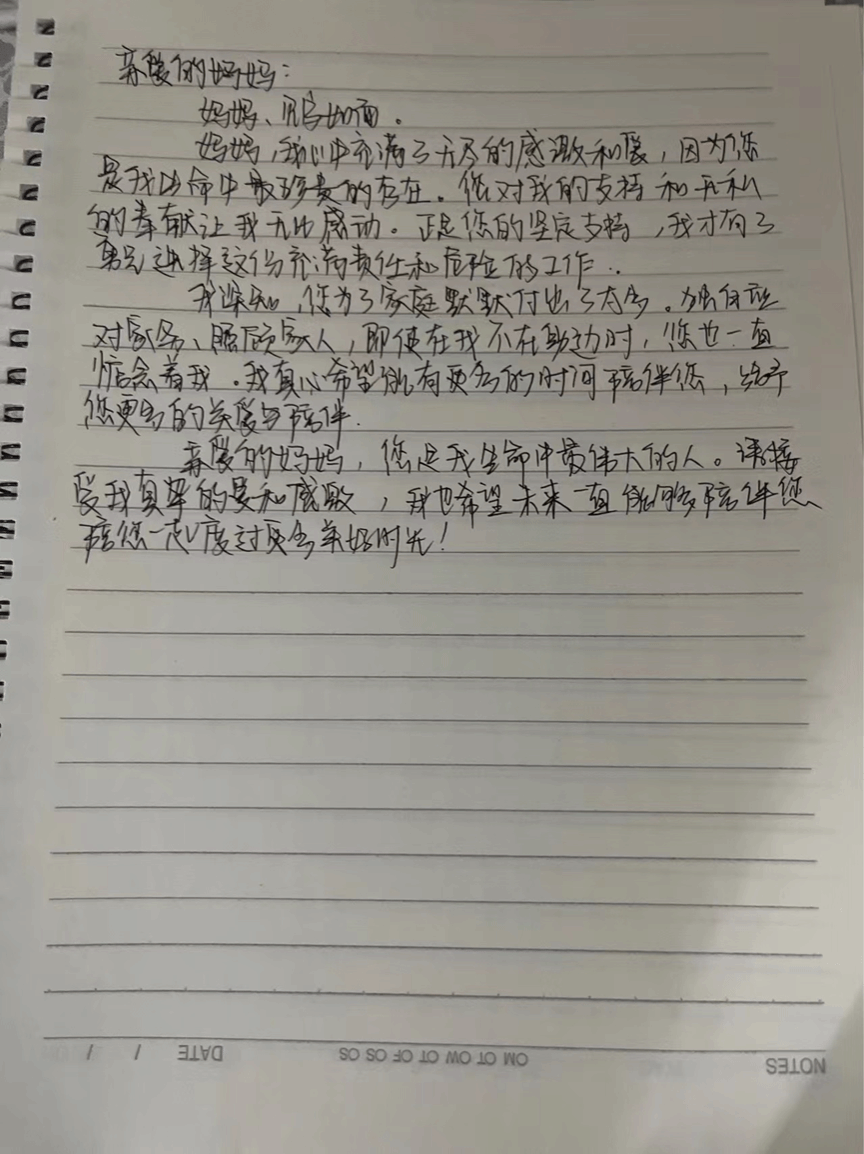 亲爱的妈妈:
妈妈、见字如面。
妈妈,我心中充满了无尽的感激和爱,因为您
是我生命中最珍贵的存在。您对我的支持和无私
的奉献让我无比感动。正是您的坚定支持,我才有了
勇气选择这份充满责任和危险的工作..
我深知,您为了家庭默默付出了太多。独自应
对家务、照顾家人,即使在我不在身边时,您也一直
惦念着我.我真心希望能有更多的时间陪伴您,给予
您更多的关爱与陪伴.
亲爱的妈妈,您是我生命中最伟大的人。请接
受我真挚的爱和感激,我也希望未来一直能够多陪伴您
陪您一起度过更多美好时光!
OM OT OW OT OF OS OS
DATE / /
NOTES